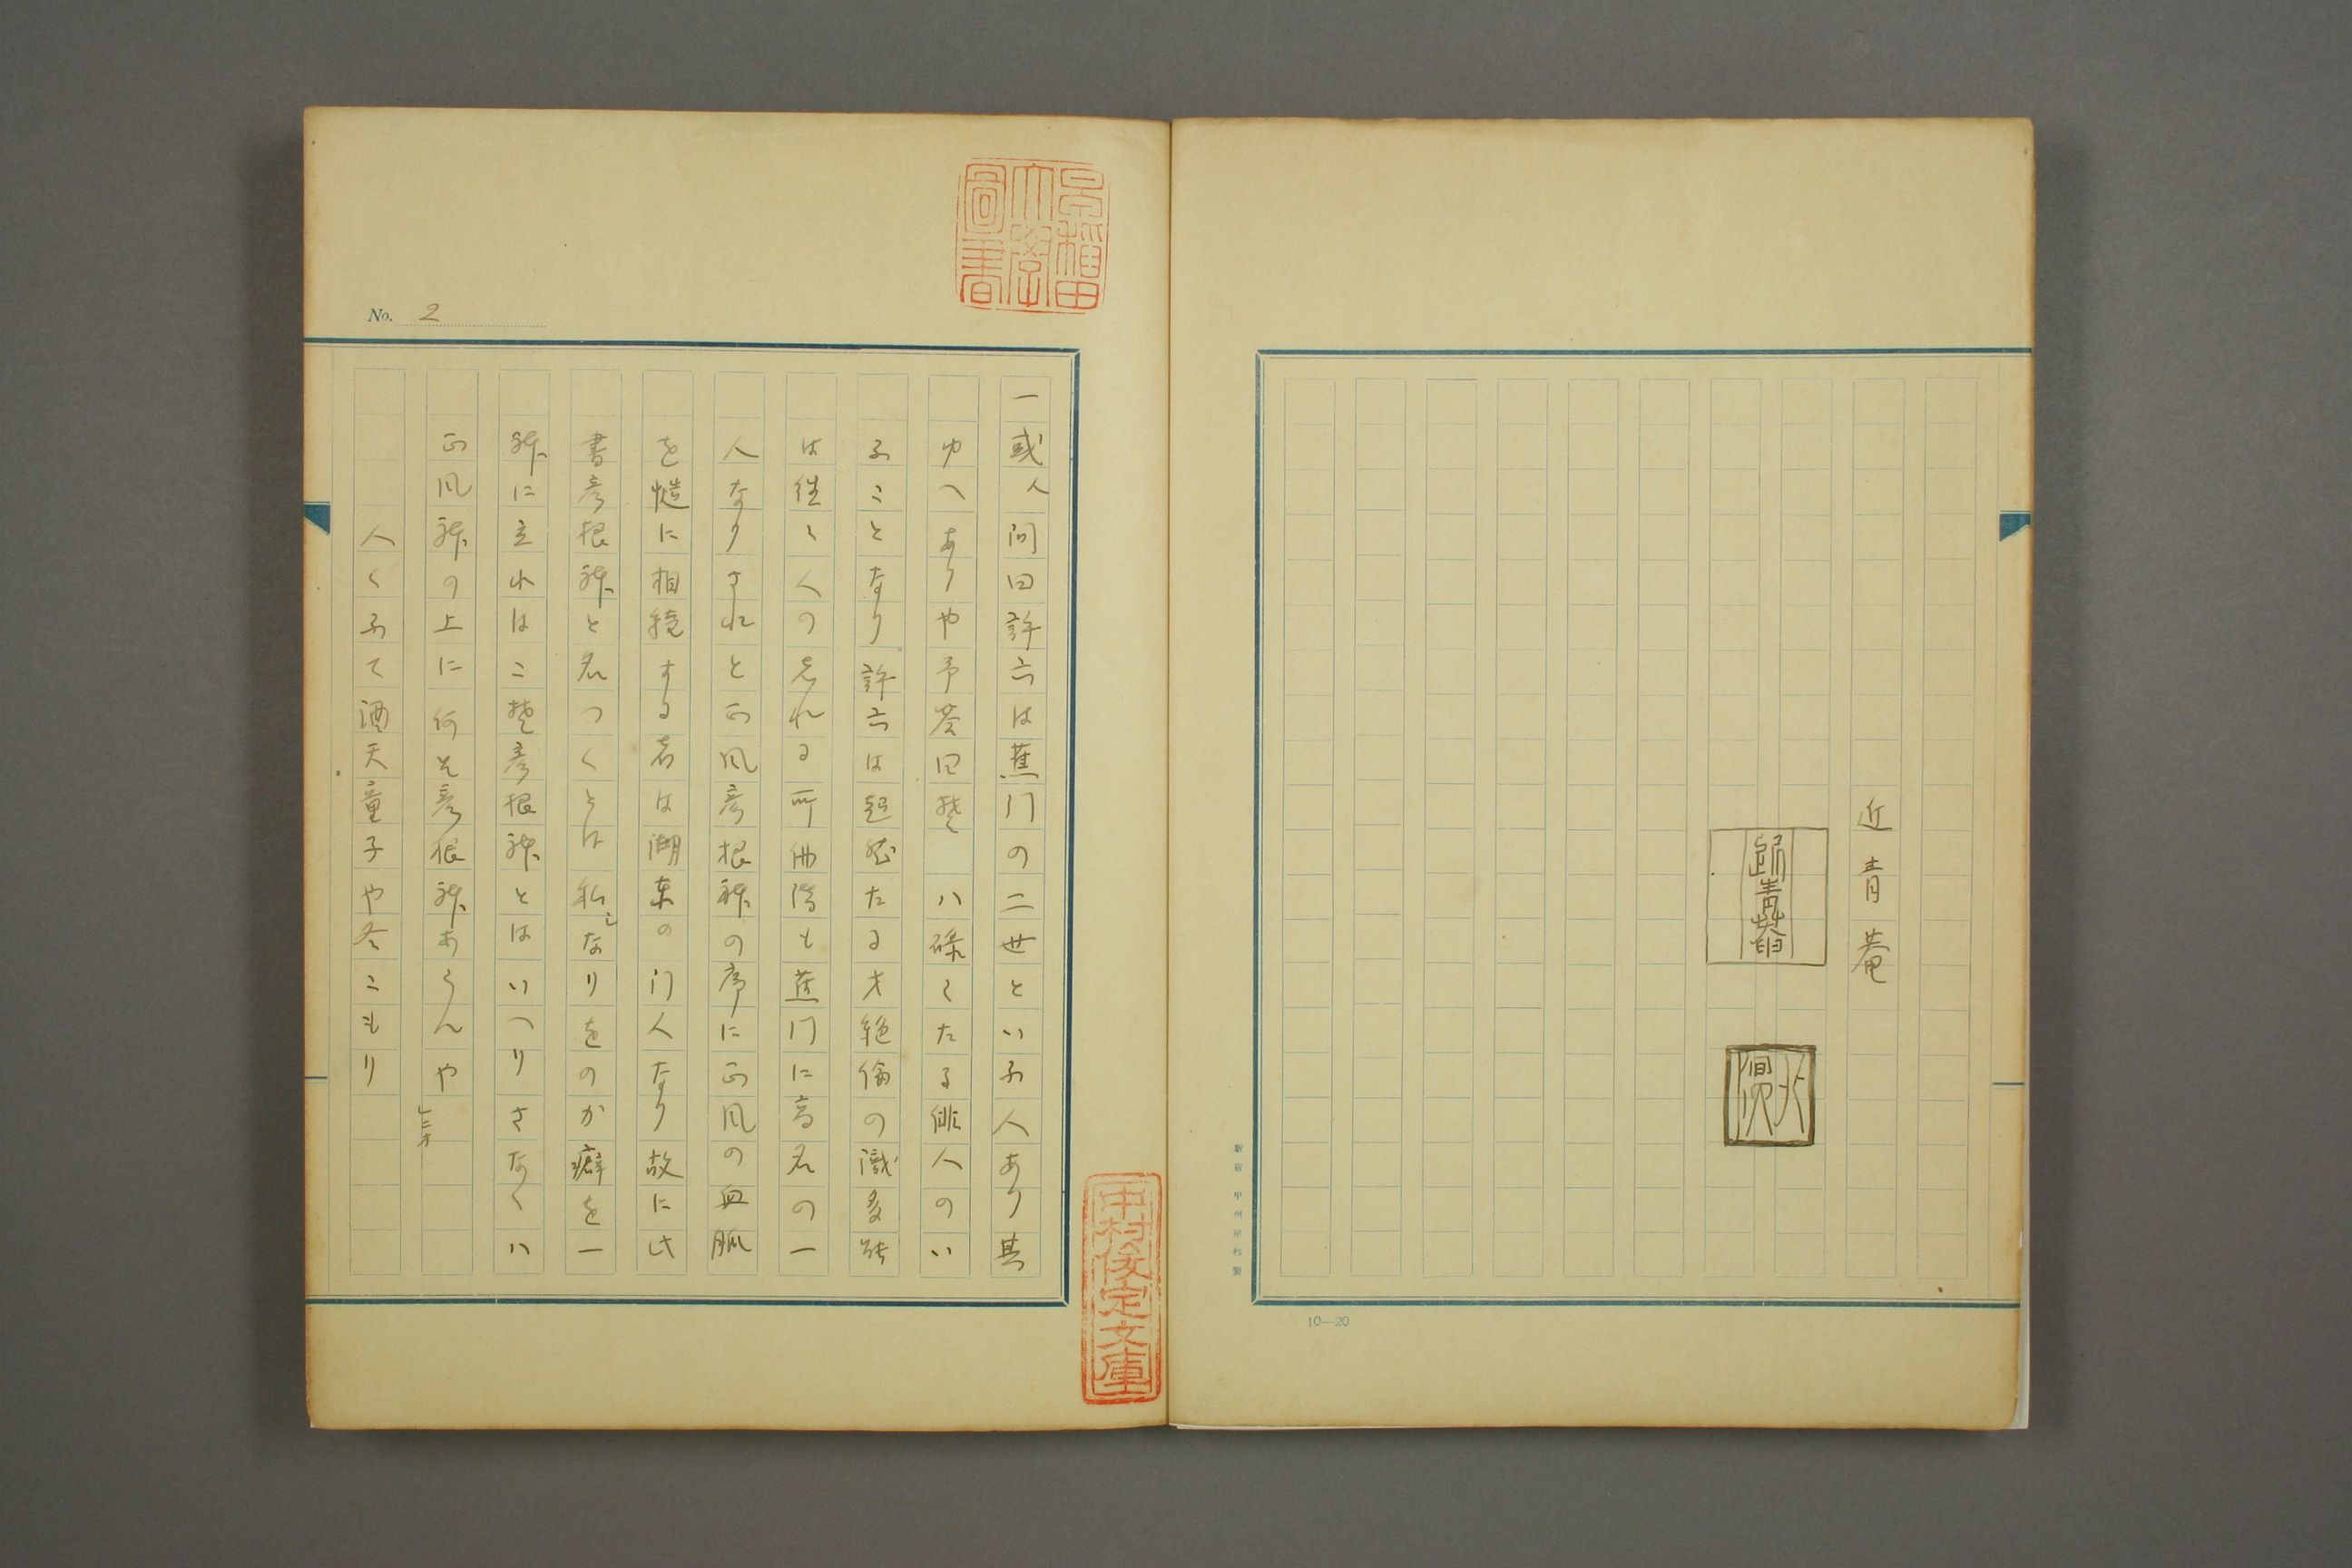 近青菴
新宿 甲州屋特製
10—20
早稲田大学図書
No. 2
一或人問曰許六は蕉門の二世といふ人あり其
ゆへありや予荅曰夫ハ碌〻たる俳人のい
ふことなり許六は超然たる才絶倫の識多能
は往〻人のしれる所俳諧も蕉門に高名の一
人なりされと正風彦根躰の序に正風の血脈
を慥に相続する者は湖東の門人なり故に此
書彦根躰と名つくとは私なりをのか癖を一
躰に立れはこそ彦根躰とはいへりさなくハ
正風躰の上に何そ彦根躰あらんや
人くふて酒天童子や冬こもり
中村俊定文庫